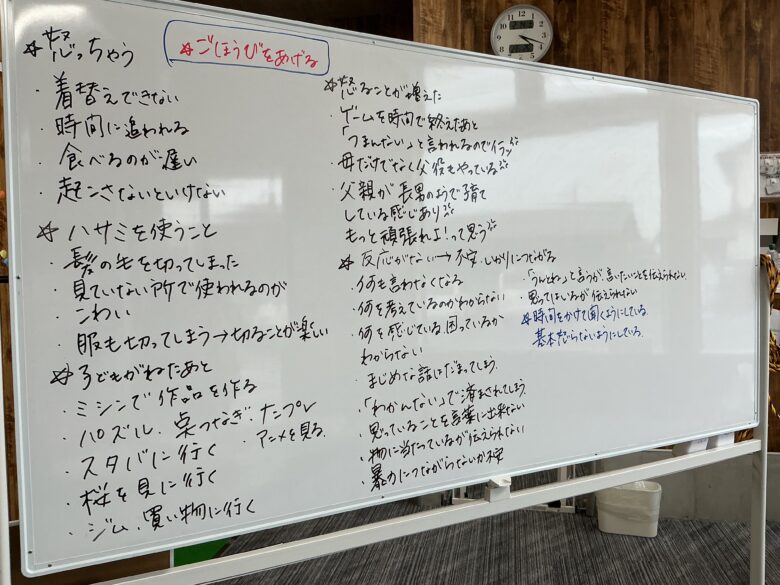 ☆怒っちゃう
☆ごほうびをあげる
・着替えできない
・時間に追われる
・食べるのが遅い
・起こさないといけない
☆ハサミを使うこと
・髪の毛を切ってしまった
・見ていない所で使われるのが
こわい
・服も切ってしまう→切ることが楽しい
☆子どもがねたあと
・ミシンで作品を作る
・パズル、点つなぎ・ナンプレ
・スタバに行く
・アニメを見る
・桜を見に行く
・ジム、買い物に行く
☆怒ることが増えた
・ゲームを時間で終えたあと
「つまんない」と言われるのでイラッ
・母だけでなく父役もやっている
・父親が長男のようで子育て
している感じあり
もっと頑張れよ!って思う
☆反応がない→不安、しかりにつながる
・何も言わなくなる
・何を考えているのかわからない
・何を感じている、困っているか
わからない
・まじめな話はだまってしまう
・「わかんない」で済まされてしまう
・思っていることを言葉に出来ない
・物に当たっているが伝えられない
・暴力につながらないか不安
・「うんとね」と言うが言いたいことを伝えられない
・思ってはいるが伝えられない
☆時間をかけて聞くようにしている
基本怒らないようにしている